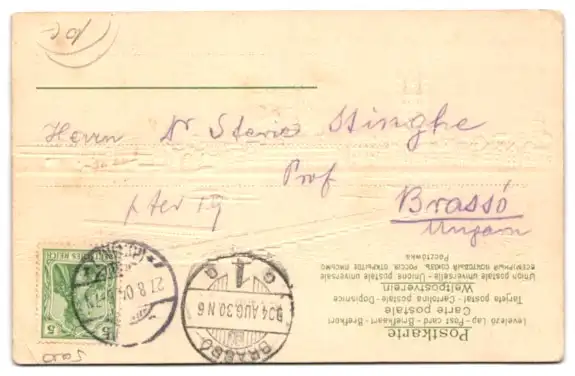 Herrn Dr Stinghe
Prof
Brassó
Ungarn
Postkarte
Carte postale
Levelező Lap - Post card - Briefkaart - Brefkort
Weltpostverein
Tarjeta postal - Cartolina postale - Dopisnice
Union postale universelle - Unione postale universale
ВСЕМІРНЫЙ ПОЧТОВЫЙ СОЮЗЪ. РОССІЯ. ОТКРЫТОЕ ПИСЬМО
DEUTSCHES REICH
5
5
27.8.04
BRASSÓ
904 AUG.30 N6
1